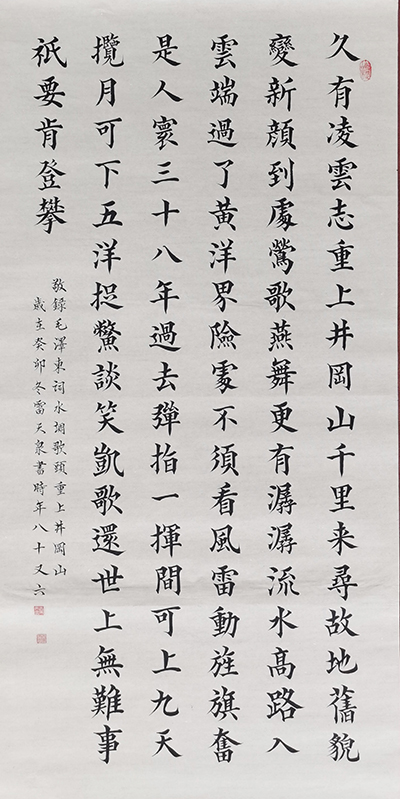 久有凌雲志重上井岡山千里来尋故地舊貌
變新顔到處鶯歌燕舞更有潺潺流水高路入
雲端過了黃洋界險處不須看風雷動旌旗奮
是人寰三十八年過去彈指一揮間可上九天
攬月可下五洋捉鱉談笑凱歌還世上無難事
祇要肯登攀
敬録毛澤東詞水調歌頭重上井岡山
歲在癸卯冬雷天泉書時年八十又六